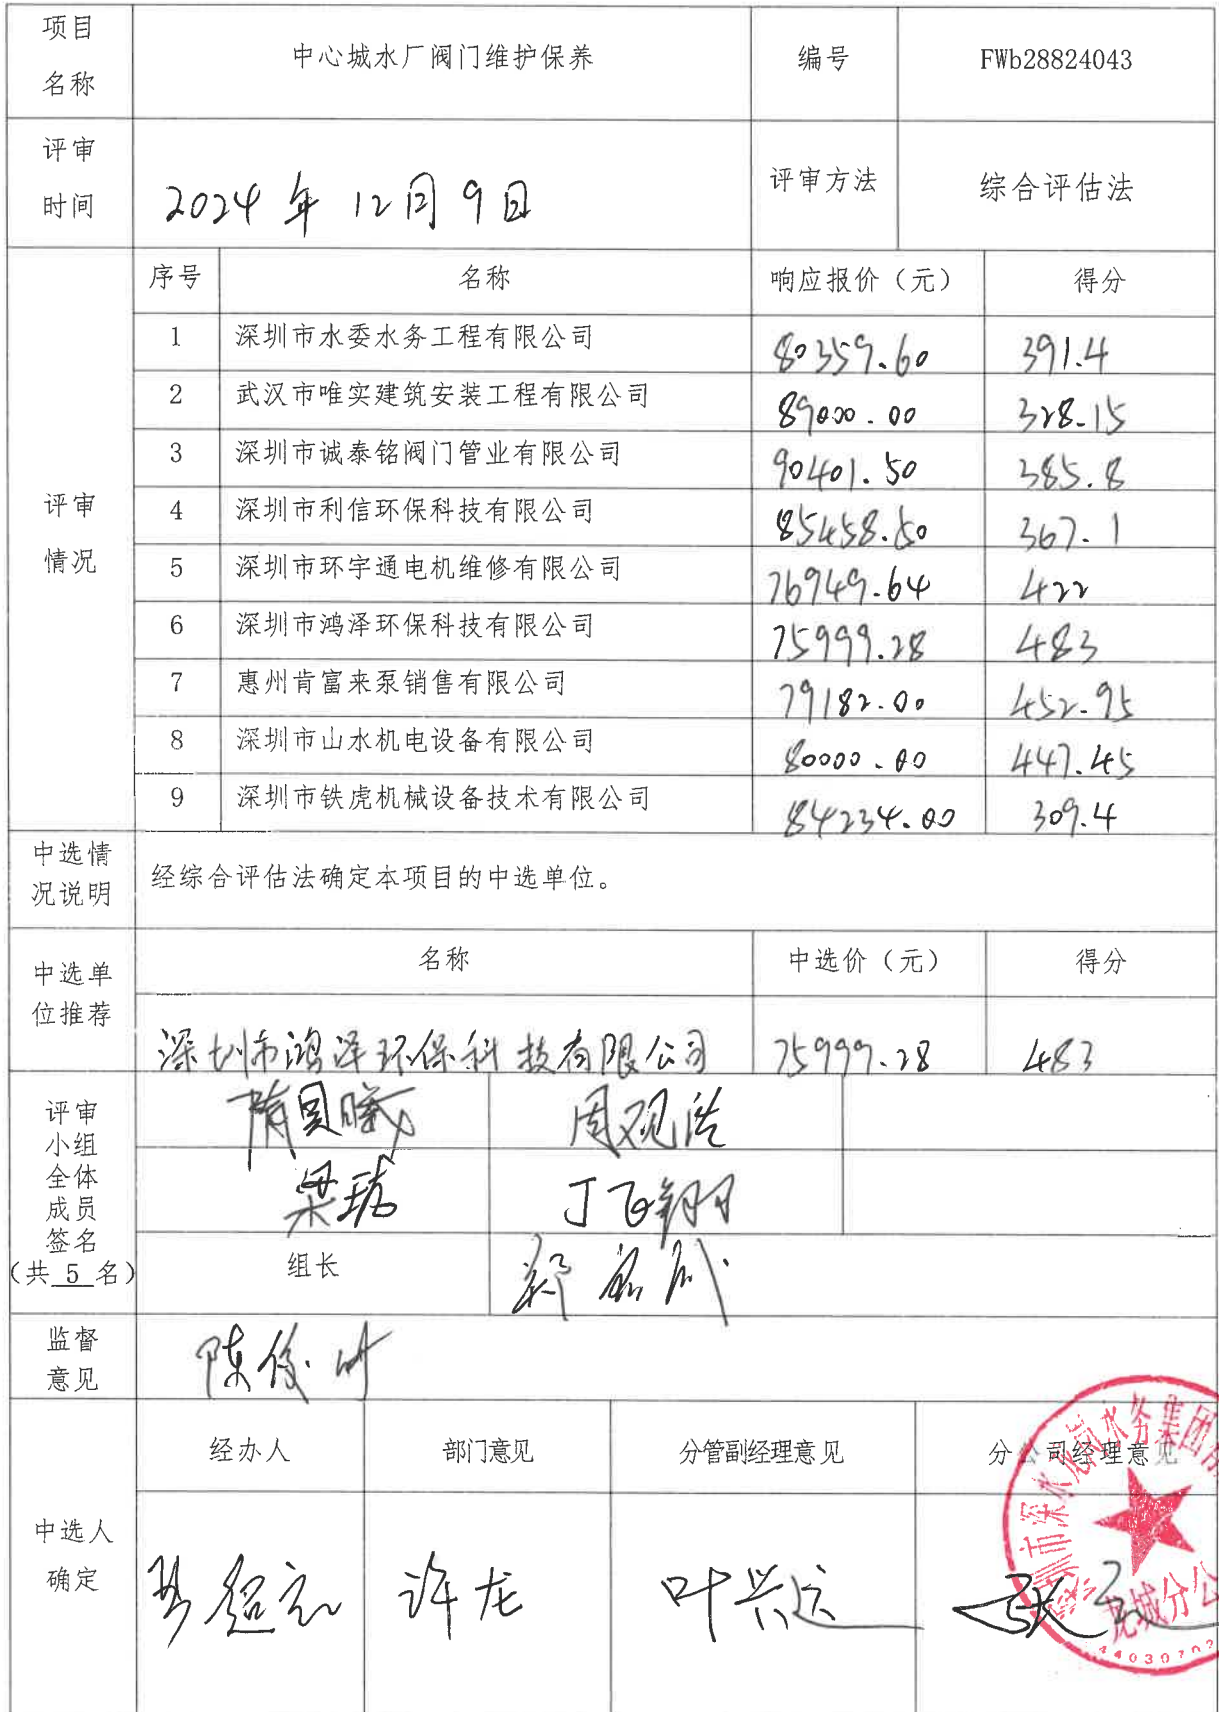 项目名称 中心城水厂阀门维护保养 编号 FWb28824043
评审时间 2024年12月9日 评审方法 综合评估法
评审情况
序号 名称 响应报价（元） 得分
1 深圳市水委水务工程有限公司 80359.60 391.4
2 武汉市唯实建筑安装工程有限公司 89000.00 328.15
3 深圳市诚泰铭阀门管业有限公司 90401.50 385.8
4 深圳市利信环保科技有限公司 85458.50 367.1
5 深圳市环宇通电机维修有限公司 76949.64 422
6 深圳市鸿泽环保科技有限公司 75999.28 483
7 惠州肯富来泵销售有限公司 79182.00 452.95
8 深圳市山水机电设备有限公司 80000.00 447.45
9 深圳市铁虎机械设备技术有限公司 84234.00 309.4
中选情况说明 经综合评估法确定本项目的中选单位。
中选单位推荐
名称 中选价（元） 得分
深圳市鸿泽环保科技有限公司 75999.28 483
评审
小组
全体
成员
签名
（共 5 名）
丁飞翔
组长
监督
意见
陈俊
中选人
确定
经办人 部门意见 分管副经理意见 分公司经理意见
许龙 叶兴运 张
圳市深水龙岗水务集团有
龙城分公
4403070